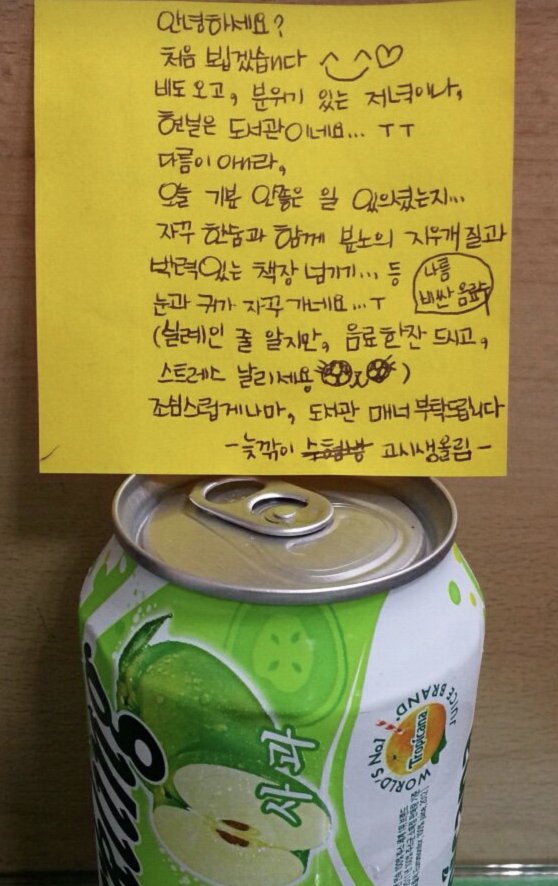 안녕하세요?
처음 뵙겠습니다 ^_^♡
비도 오고, 분위기 있는 저녁이나,
현실은 도서관이네요... ㅜㅜ
다름이 아니라,
오늘 기분 안좋은 일 있으셨는지...
자꾸 한숨과 함께 분노의 지우개 질과
박력있는 책장 넘기기... 등
눈과 귀가 자꾸 가네요...ㅜ
나름
비싼 음료수
(실례인 줄 알지만, 음료한잔 드시고,
스트레스 날리세요 )
조심스럽게나마, 도서관 매너 부탁드립니다
-늦깎이 수험생 고시생올림-
사과
WORLD'S No.1
JUICE BRAND.
Tropicana